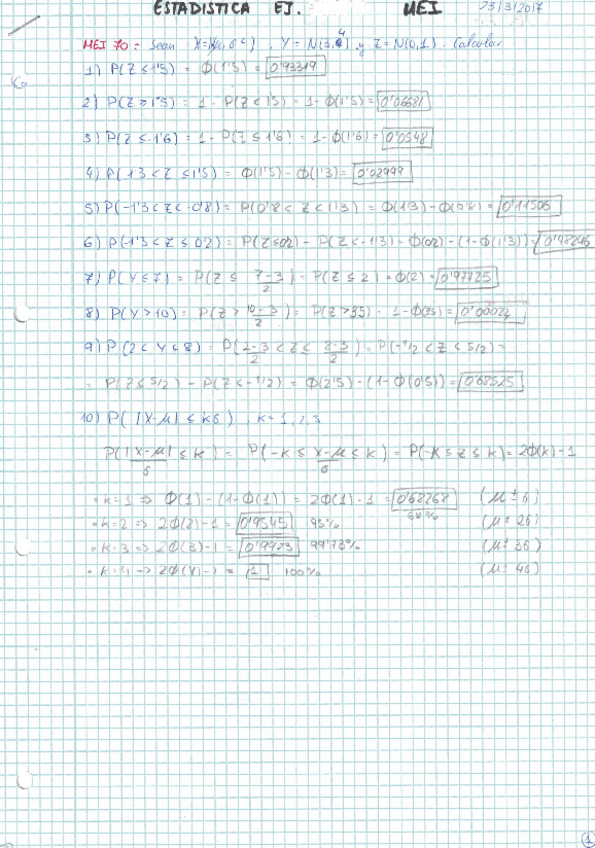 ESTADISTICA EJ. MEI 23/3/2017
MEI 70: Sean X=N(μ,σ²), Y = N(3,4) y Z = N(0,1). Calcular
1) P(Z ≤ 1'5) = Φ(1'5) = 0'93319
2) P(Z ≥ 1'5) = 1 - P(Z < 1'5) = 1 - Φ(1'5) = 0'06681
3) P(Z ≤ -1'6) = 1 - P(Z ≤ 1'6) = 1 - Φ(1'6) = 0'0548
4) P(1'3 < Z ≤ 1'5) = Φ(1'5) - Φ(1'3) =
5) P(-1'3 < Z < -0'8) = P(0'8 < Z < 1'3) = Φ(1'3) - Φ(0'8) = 0'11506
6) P(-1'3 < Z ≤ 0'2) = P(Z ≤ 0'2) - P(Z < -1'3) = Φ(0'2) - (1 - Φ(1'3)) = 0'48246
7) P(Y ≤ 7) = P(Z ≤ 7-3/2) = P(Z ≤ 2) = Φ(2) = 0'97725
8) P(Y > 10) = P(Z > 10-3/2) = P(Z > 3'5) = 1 - Φ(3'5) =
9) P(2 < Y < 8) = P(2-3/2 < Z ≤ 8-3/2) = P(-1/2 < Z < 5/2) =
= P(Z ≤ 5/2) - P(Z < -1/2) = Φ(2'5) - (1 - Φ(0'5)) = 0'68525
10) P( |X-μ| ≤ kσ ) , k = 1, 2, 3
P( |X-μ|/σ ≤ k ) = P(-k ≤ X-μ/σ ≤ k) = P(-k ≤ Z ≤ k) = 2Φ(k) - 1
• k=1 ⇒ Φ(1) - (1 - Φ(1)) = 2Φ(1) - 1 = 0'68268 (μ ± σ)
• k=2 ⇒ 2Φ(2) - 1 = 0'9545 95% (μ ± 2σ)
• k=3 ⇒ 2Φ(3) - 1 = 0'9973 99'73% (μ ± 3σ)
• k=4 ⇒ 2Φ(4) - 1 = 1 100% (μ ± 4σ)
1